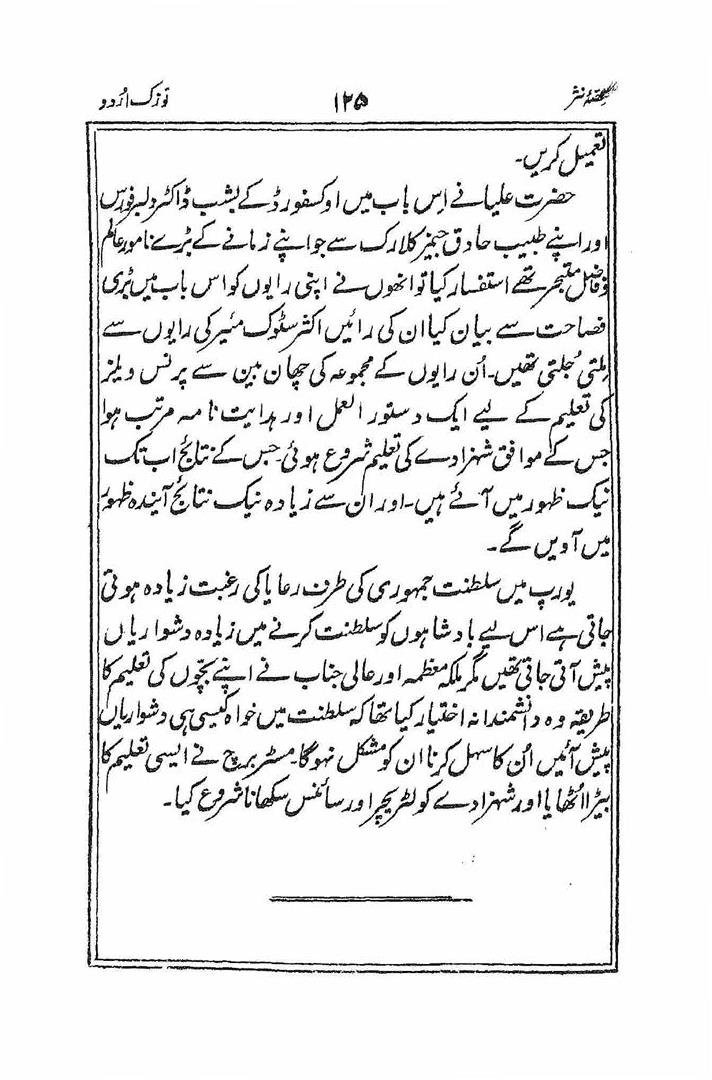 حصۂ نثر ۱۲۵ توزک اردو
تعمیل کریں۔
حضرت علیا نے اِس باب میں اوکسفورڈ کے بشپ ڈاکٹر ولبرفورس
اور اپنے طبیب حاذق جیمز کلارک سے جو اپنے زمانے کے بڑے نامور عالم
و فاضل متبحر تھے استفسار کیا تو انھوں نے اپنی رایوں کو اس باب میں بڑی
فصاحت سے بیان کیا ان کی رائیں اکثر سٹوک میئر کی رایوں سے
مِلتی جُلتی تھیں۔ اُن رایوں کے مجموعہ کی چھان بین سے پرنس ویلز
کی تعلیم کے لیے ایک دستور العمل اور ہدایت نامہ مرتب ہوا
جس کے موافق شہزادے کی تعلیم شروع ہوئی۔ جس کے نتائج اب تک
نیک ظہور میں آئے ہیں۔ اور ان سے زیادہ نیک نتائج آیندہ ظہور
میں آویں گے۔
یورپ میں سلطنت جمہوری کی طرف رعایا کی رغبت زیادہ ہوتی
جاتی ہے اس لیے بادشاہوں کو سلطنت کرنے میں زیادہ دشواریاں
پیش آتی جاتی تھیں مگر ملکہ معظمہ اور عالی جناب نے اپنے بچّوں کی تعلیم کا
طریقہ وہ دانشمندانہ اختیار کیا تھا کہ سلطنت میں خواہ کیسی ہی دشواریاں
پیش آئیں اُن کا سہل کرنا ان کو مشکل نہوگا۔ مسٹر برچ نے ایسی تعلیم کا
بیڑا اُٹھایا اور شہزادے کو لٹریچر اور سائنس سکھانا شروع کیا۔